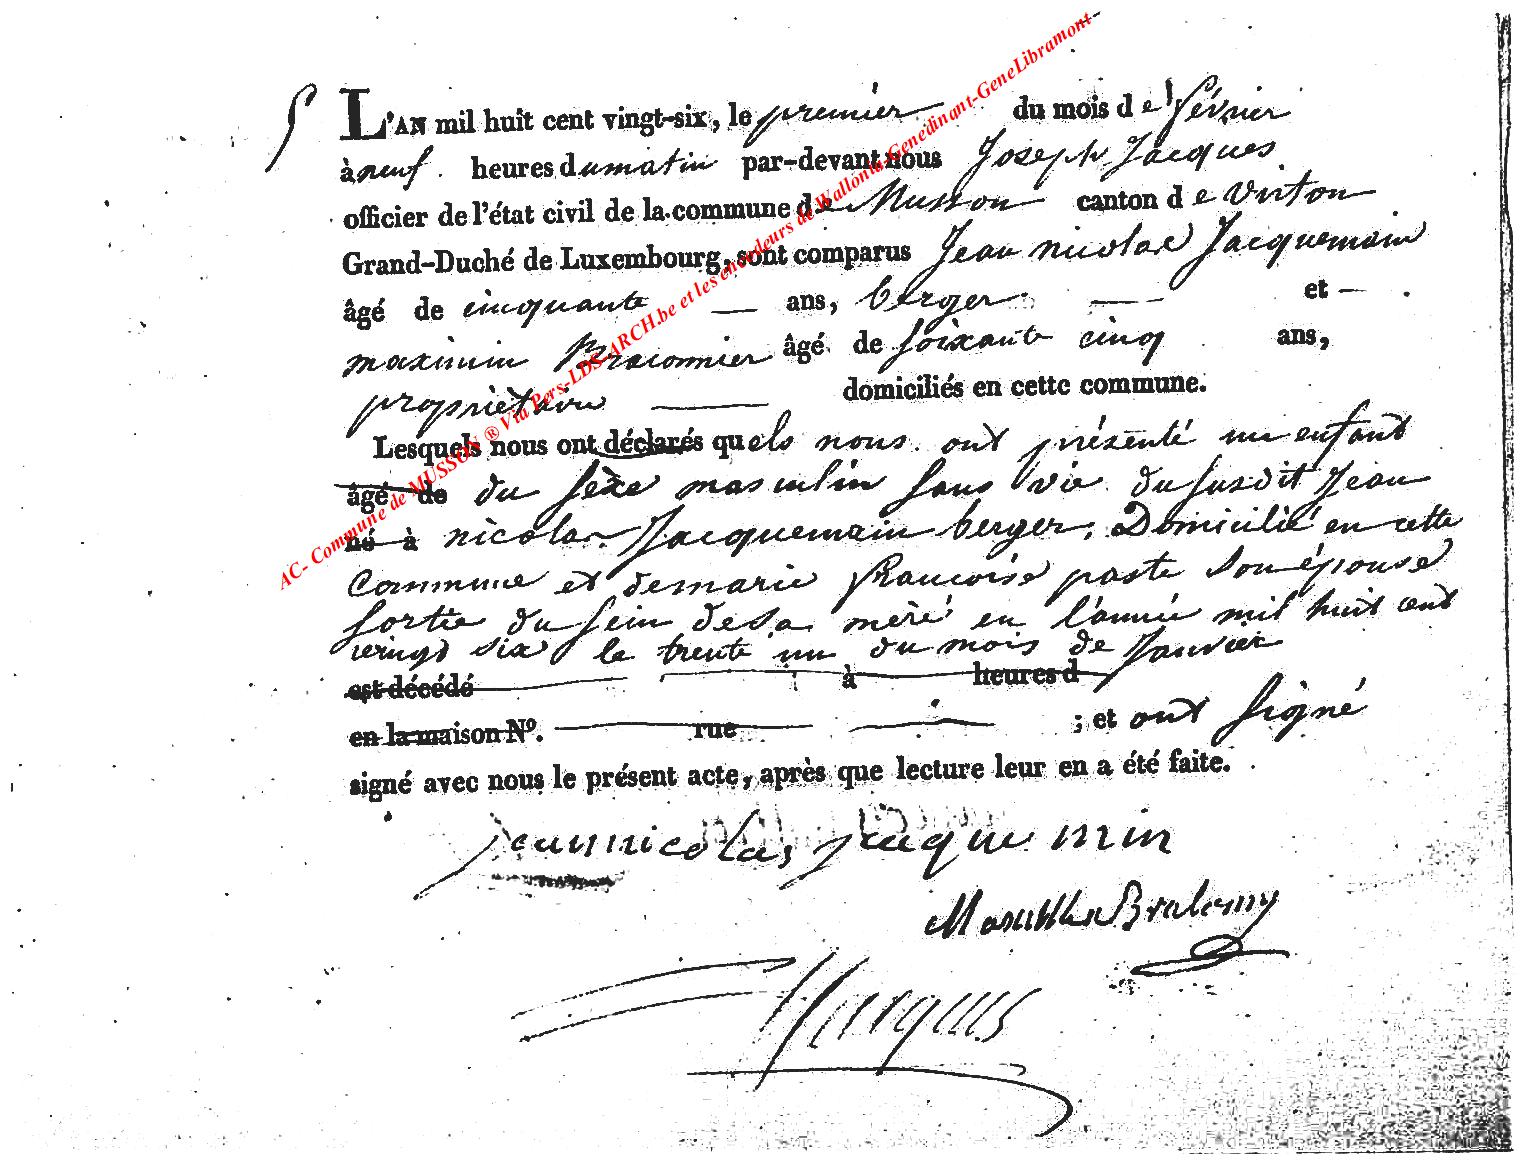 5
L'AN mil huit cent vingt-six, le premier du mois de février
à neuf heures du matin par-devant nous Joseph Jacques
officier de l'état civil de la commune de Musson canton de Virton
Grand-Duché de Luxembourg, sont comparus Jean nicolas Jacquemain
âgé de cinquante ans, berger et
maximin Braconnier âgé de soixante cinq ans,
propriètaire domiciliés en cette commune.
Lesquels nous ont déclarés quels nous ont présenté un enfant
âgé de du sèxe masculin sans vie du susdit Jean
né à nicolas Jacquemain berger, Domicilié en cette
commune et de marie francoise paste son épouse
sortie du sein de sa mère en l'année mil huit cent
vingt six le trente un du mois de Janvier
est décédé à heures d
en la maison No. rue ; et ont signé
signé avec nous le présent acte, après que lecture leur en a été faite.
jean nicolas jacquemin
Jacques
AC- Commune de MUSSON ® Via Pers-LDS-ARCH.be et les encodeurs de Wallonia-Genedinant-GeneLibramont